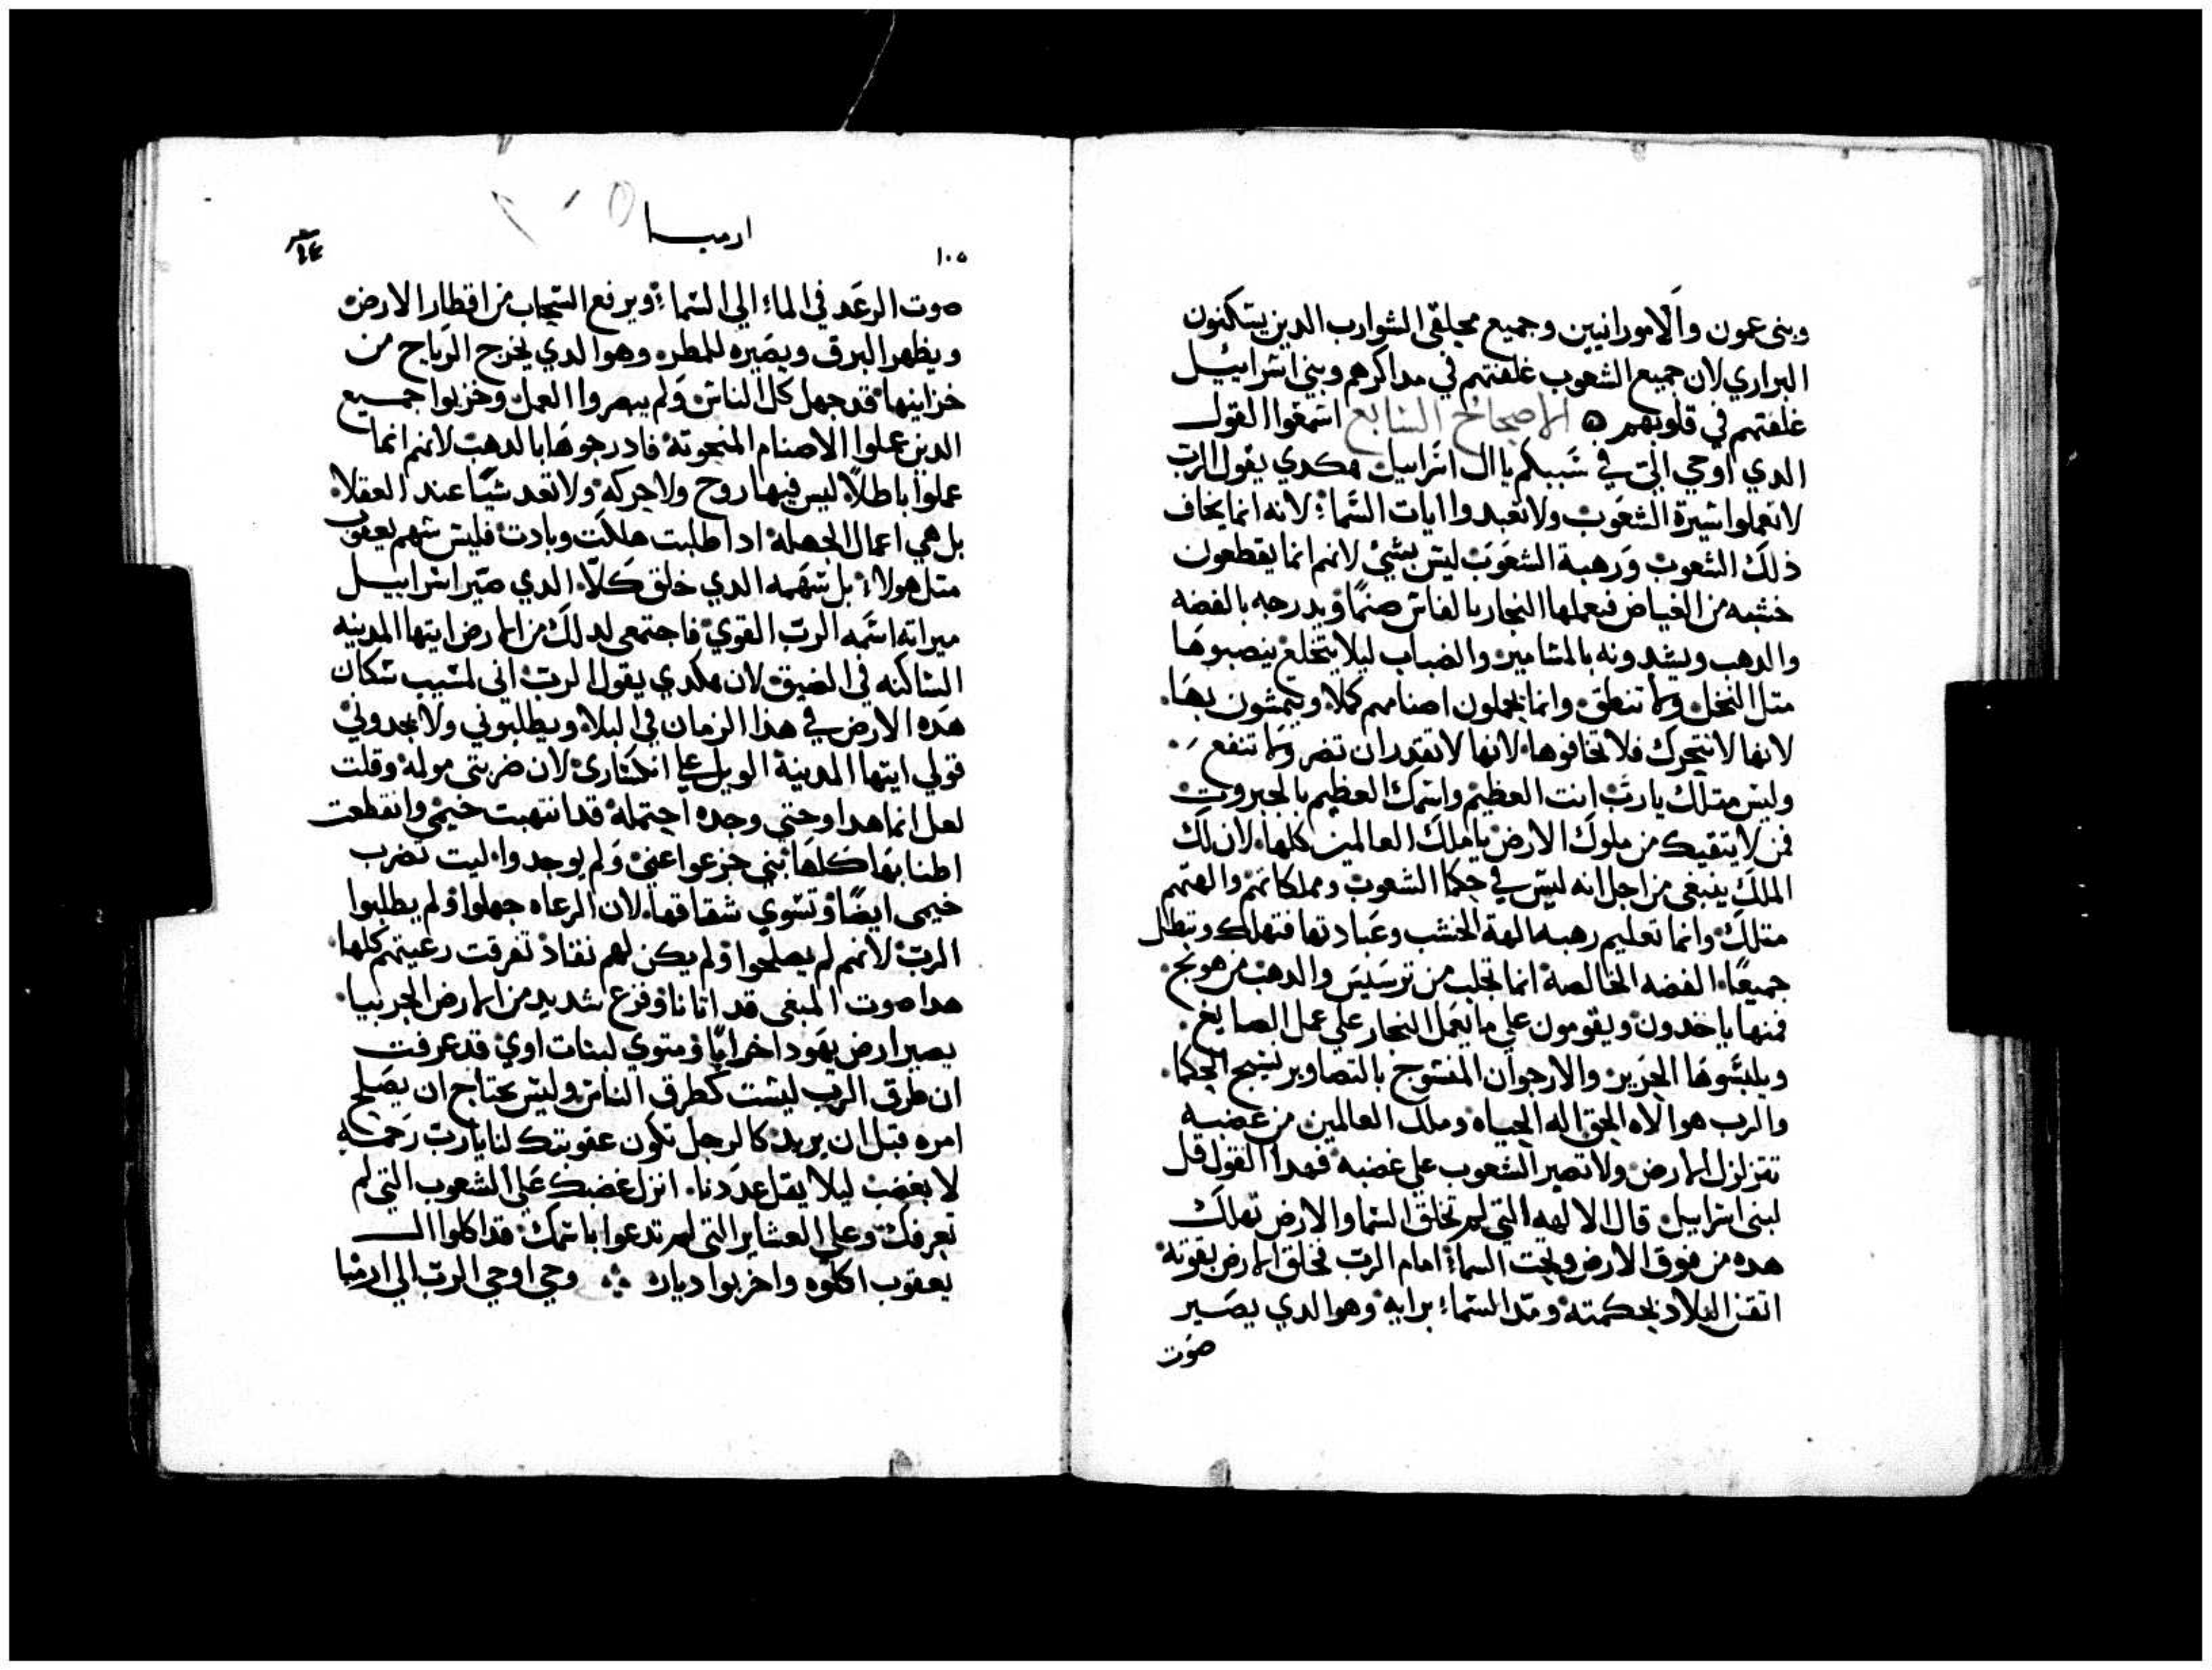 وبنى عمون والامورانيين وجميع محلقي الشوارب الدين يسكنون
البراري لان جميع الشعوب غلفتهم في مداكرهم وبني اسراييل
غلفتهم في قلوبهم ٥ الاصحاح السابع اسمعوا القول
الدي اوحي الى في سببكم يا ال اسراييل هكدي يقول الرب
لا تعملوا سيرة الشعوب ولا تعبدوا ايات السماء لانه انما يخاف
ذلك الشعوب ورهبة الشعوب ليس بشي لانهم انما يقطعون
خشبه من الغياض فيعملها النجار بالفاس صنمًا ويدرجه بالفضه
والدهب ويشدونه بالمسامير والضباب ليلا يتخلع ينصبوها
متل النخل ولا تنطق وانما يحملون اصنامهم كملا ويمشون بها
لانها لا تتحرك فلا تخافوها لانها لا تقدر ان تضر ولا تنفع
وليس متلك يا رب انت العظيم واسمك العظيم بالجبروت
فمن لا يتقيك من ملوك الارض يا ملك العالمين كلها لان لك
الملك ينبغي من اجل انه ليس في حكما الشعوب ومملكاتهم والهتهم
متلك وانما تعليم رهبه الهة الخشب وعبادتها فتهلك وتبطل
جميعًا الفضه الخالصة انما تجلب من ترسيس والدهب من
فمنها ياخدون ويقومون على ما يعمل النجار على عمل الصايغ
ويلبسوها الحرير والارجوان المنسوج بالتصاوير نسيج الحكما
والرب هو الاه الحق اله الحياه وملك العالمين من غضبه
تتزلزل الارض ولا تصبر الشعوب على غضبه فهدا القول قل
لبنى اسراييل قال الالهه التي لم تخلق السما والارض تهلك
هده من فوق الارض وتحت السماء امام الرب فخلق الارض بقوته
اتقن البلاد بحكمته ومد السماء برايه وهو الدي يصير
صوت
ارميا
١٠٥
صوت الرعد في الماء الي السماء ويرفع السحاب من اقطار الارض
ويظهر البرق ويصيره للمطر وهو الدي يخرج الرياح من
خزاينها قد جهل كل الناس ولم يبصروا العمل وخزيوا جميع
الدين عملوا الاصنام المنحوتة فادرجوها بالدهب لانهم انما
عملوا باطلًا ليس فيها روح ولا حركه ولا تعد شيًا عند العقلا
بل هي اعمال الجهلة ادا طلبت هلكت وبادت فليس سهم يعقوب
متل هولاء بل سهمه الدي خلق كلا الدي صير اسراييل
ميراته اسمه الرب القوي فاجتمعي لدلك من الارض ايتها المدينه
الساكنه في الضيق لان هكدي يقول الرب اني لمسيب سكان
هده الارض في هذا الزمان في البلاء ويطلبوني ولا يجدوني
قولي ايتها المدينة الويل علي انكساري لان ضربتي مولمة وقلت
لعل انما هدا وحتى وجده احتملة قد انتهبت خيمي وانقطعت
اطنابها كلها بني خرعوا عني ولم يوجدوا ليت تضرب
خيمي ايضًا وتسوي شقاقها لان الرعاه جهلوا ولم يطلبوا
الرب لانهم لم يصلحوا ولم يكن لهم نفاذ تفرقت رعيتهم كلها
هدا صوت المبغي قد اتانا وفزع شديد من الارض الجربيا
يصير ارض يهودا خرابًا ومتوي لبنات اوي قد عرفت
ان طرق الرب ليست كطرق الناس وليس يحتاج ان يصلح
امره قبل ان يريد كالرجل تكون عقوبتك لنا يا رب رحمه
لا بغضب ليلا يقل عددنا انزل غضبك على الشعوب التي لم
تعرفك وعلى العشاير التي لم تدعوا باسمك قد اكلوا ال
يعقوب اكلوه واخربوا دياره وحي اوحي الرب الي ارميا